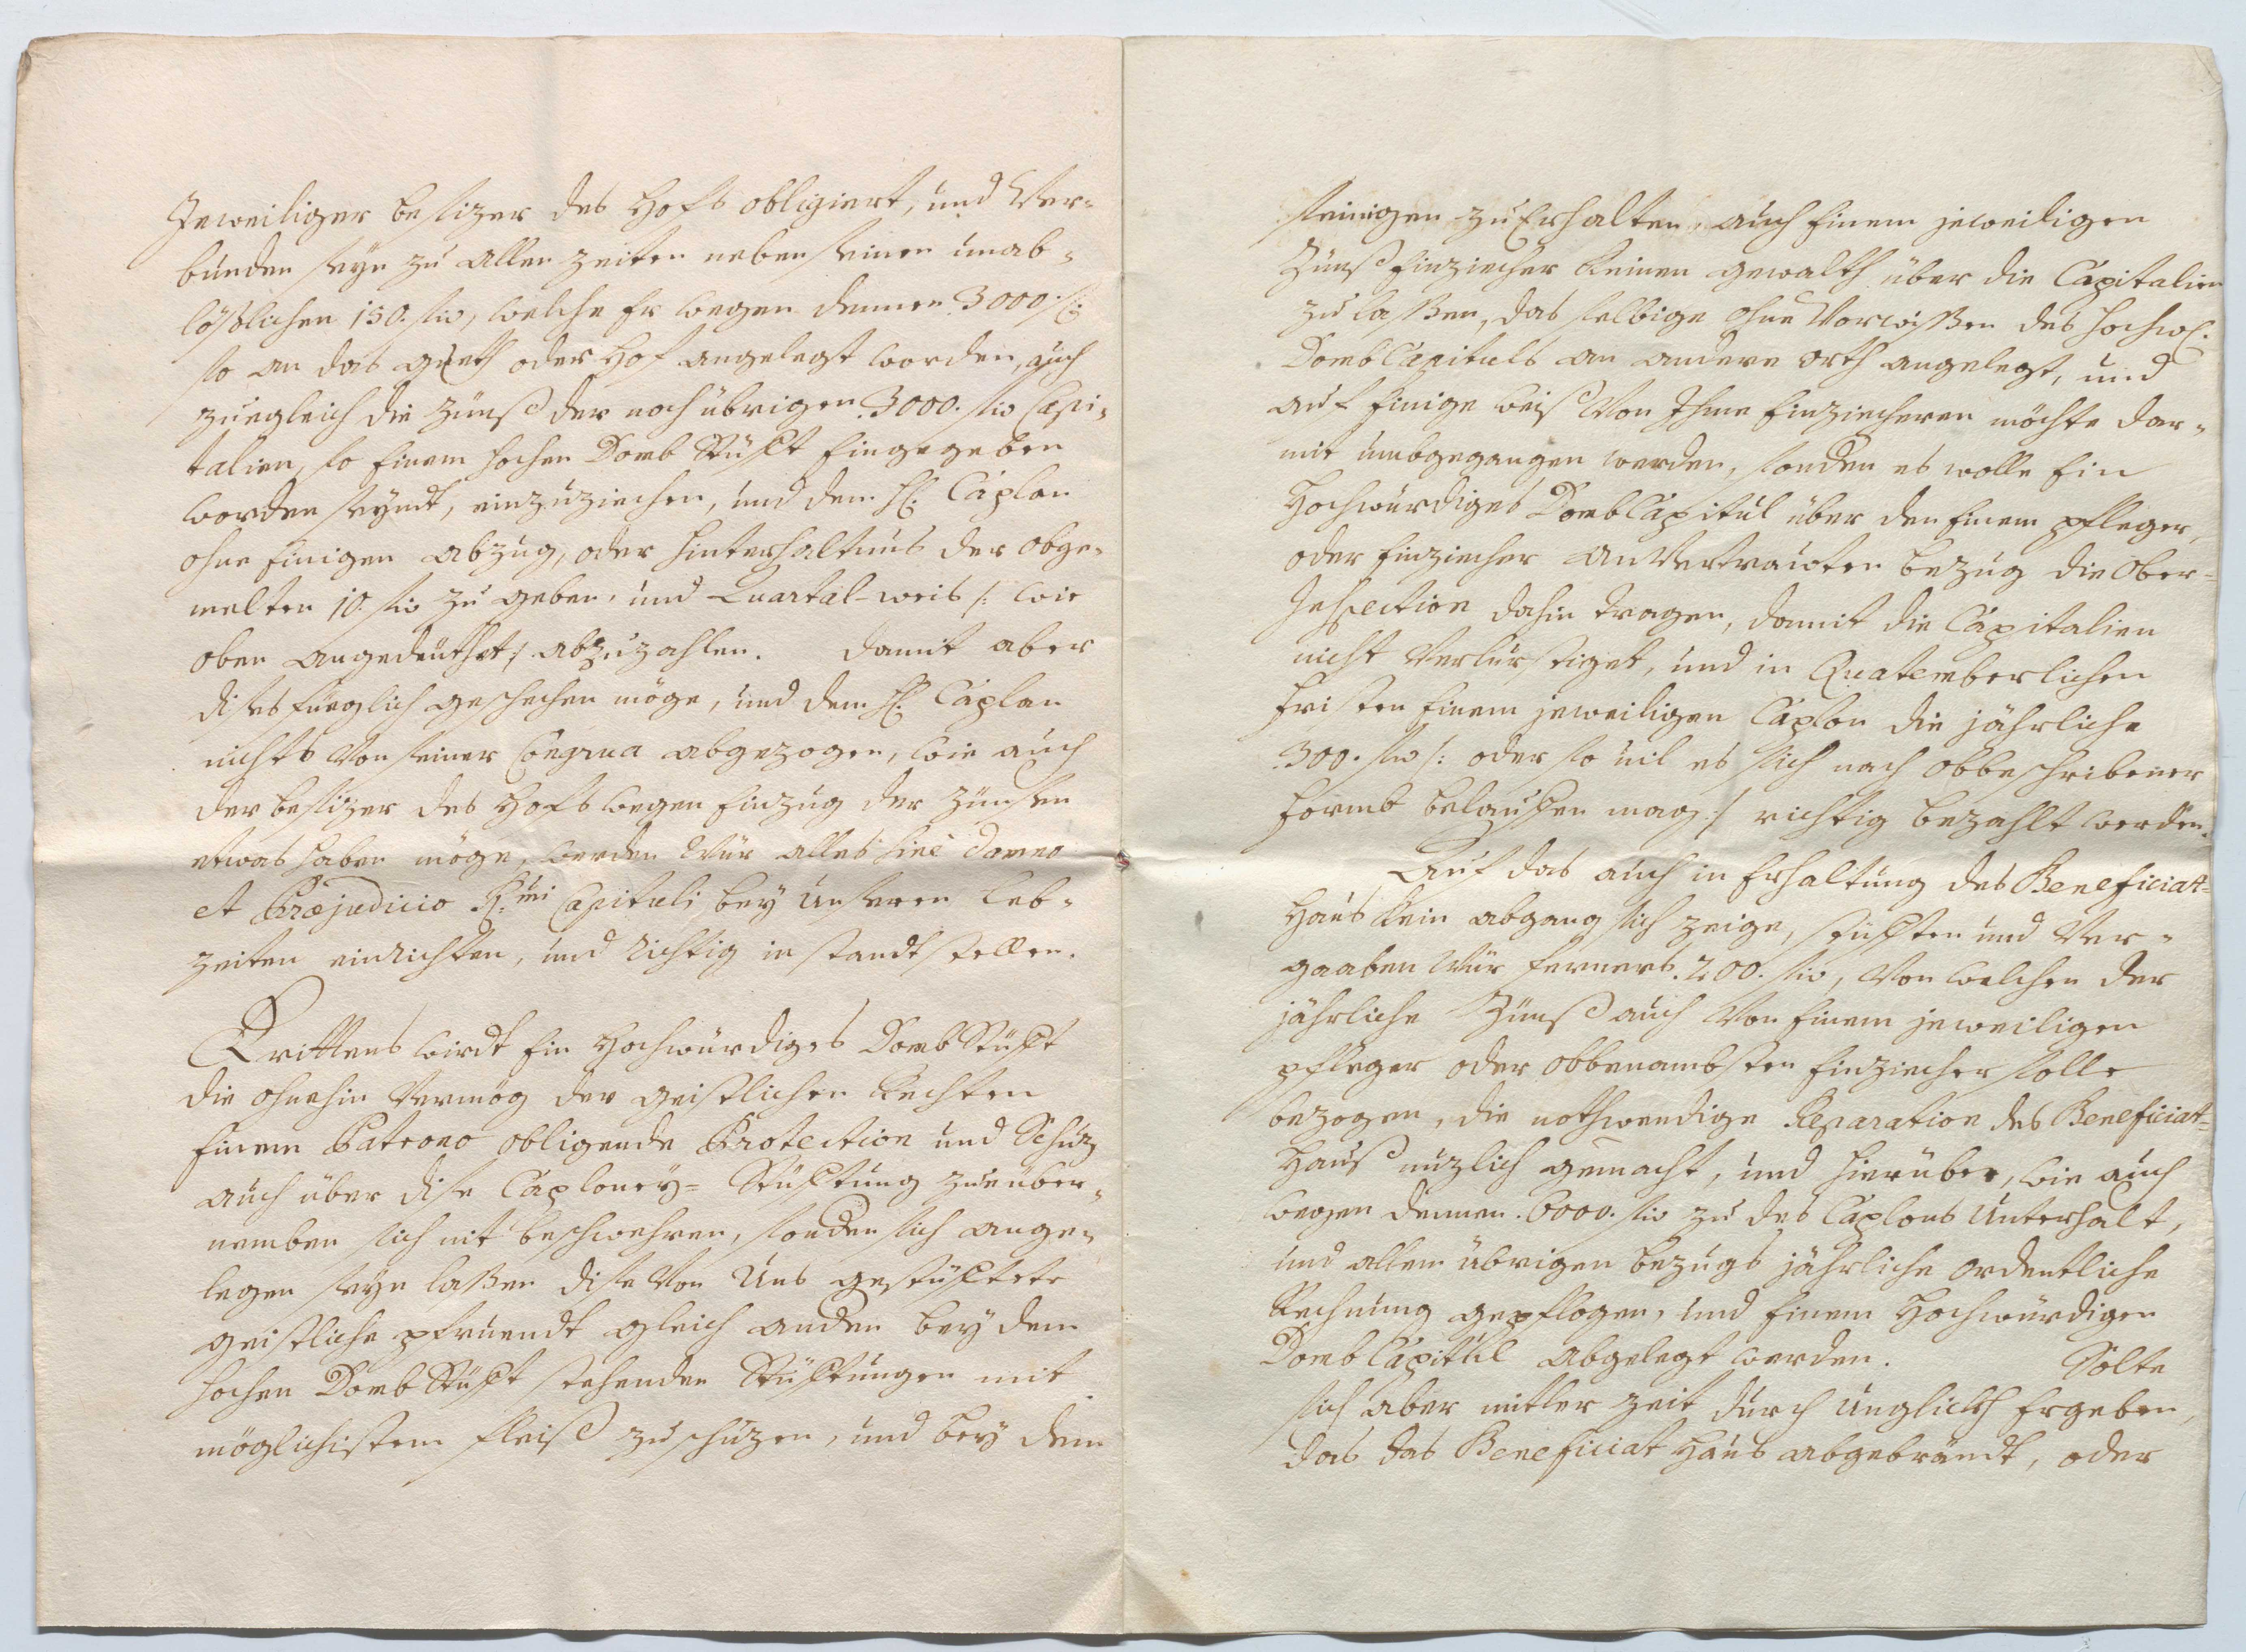 Jeweiliger besizer des Hofs obligiert, und Ver-
bunden seyn zu allen zeiten neben seinen unab-
lößlichen 150. fl., welche Er wegen dennen 3000. fl.
so an das gueth oder Hof angelegt worden, auch
zuegleich die Zünß der noch übrigen 3000. fl. Capi-
talien, so Einem hochen Domb Stüfft Eingegeben
worden seyndt, einzuziechen, und dem H: Caplan
ohne Einigen abzug, oder hinterhaltnus der obge-
melten 10. fl. zu geben, und Quartal-weis /: wie
oben angedeuthet :/ abzuzahlen. damit aber
dises füeglich geschechen möge, und dem H: Caplan
nichts Von seiner Congrua abgezogen, wie auch
der besizer des Hofs wegen Einzug der Zünsen
etwas haben möge, werden Wür alles sine damno
et Præjudicio Rmi Capituli bey Unseren Leb-
zeiten einrichten, und richtig in standt stellen.
Drittens wirdt Ein Hochwürdiges Domb Stüfft
die ohnehin Vermög der geistlichen Rechten
Einem Patrono obligende Protection und Schuz
auch über dise Caploney- Stüfftung zueüber-
nemben sich nit beschwehren, sonder sich ange-
legen seyn laßen dise Von Uns gestüfftete
geistliche pfruendt gleich andern bey dem
hochen Domb Stüfft stehenden Stüfftungen mit
möglichistem fleiß zu schuzen, und bey dem
seinigen zu Erhalten, auch Einem jeweiligen
Zünß Einziecher keinen gewalth über die Capitalien
zu laßen, das selbige ohne Vorwißen des hochw:
Domb Capituls an andere orth angelegt, und
auf Einige weiß Von Ihme Einziecheren möchte dar-
mit umbgegangen werden, sondern es wolle Ein
Hochwürdiges Domb Capitul über den Einem pfleger,
oder Einziecher anVertrauten bezug die Ober-
Inspection dahin tragen, damit die Capitalien
nicht Verlürstiget, und in Quatemberlichen
fristen Einem jeweiligen Caplan die jährliche
300. fl. /: oder so vil es sich nach obbeschribener
formb belauffen mag :/ richtig bezahlt werden.
Auf das auch in Erhaltung des Beneficiat-
Haus kein abgang sich zeige, stüfften und Ver-
gaaben Wür ferners 200. fl., Von welchen der
jährliche Zünß auch Von Einem jeweiligen
pfleger oder obbenambsten Einziecher solle
bezogen, die nothwendige Reparation des Beneficiat-
Hauß nuzlich gemacht, und hierüber, wie auch
wegen denen 6000. fl. zu des Caplans Unterhalt,
und allem übrigen bezugs jährliche ordentliche
Rechnung gepflogen, und Einem Hochwürdigen
Domb Capitul abgelegt werden. Solte
sich aber mitler zeit durch Unglickh Ergeben,
das das Beneficiat Haus abgebrandt, oder